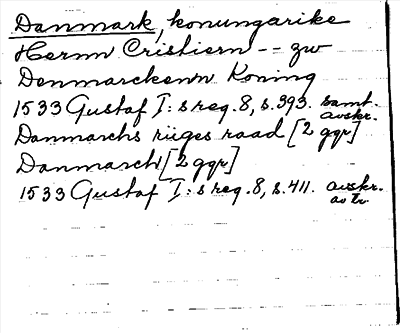 Danmark, konungarike
Herrn Cristiern -- zw
Denmarckenn Koning
1533 Gustaf I:s reg. 8, s. 393. samt. avskr.
Danmarchs riiges raad [2 ggr]
Danmarch [2 ggr]
1533 Gustaf I:s reg. 8, s. 411. avskr. av tr.